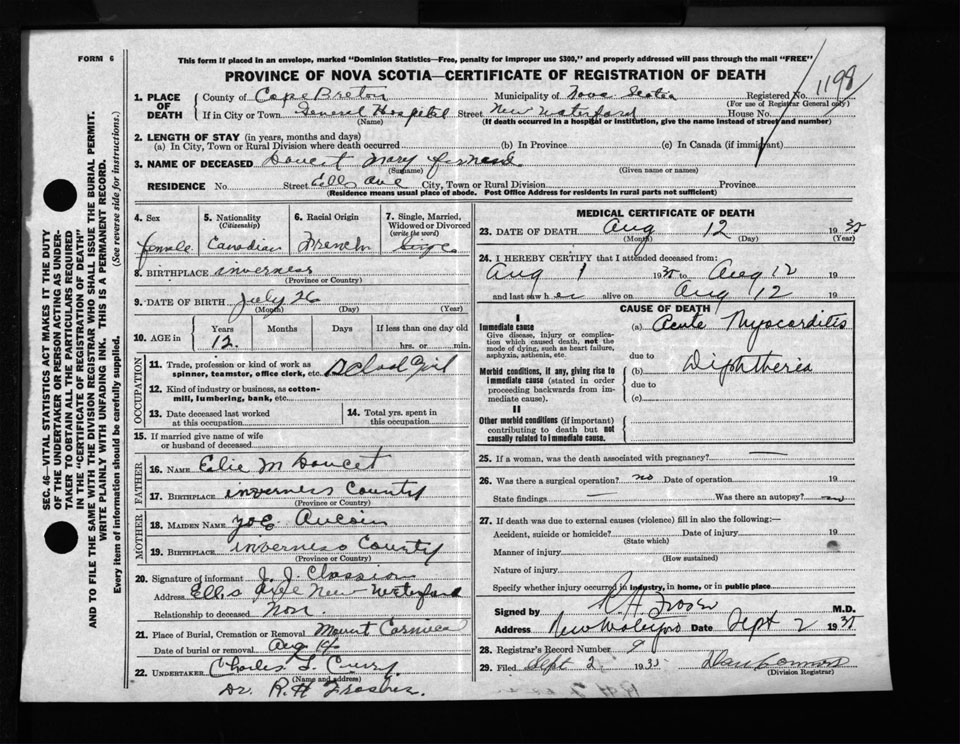 FORM 6
This form if placed in an envelope, marked "Dominion Statistics—Free, penalty for improper use $300," and properly addressed will pass through the mail "FREE"
PROVINCE OF NOVA SCOTIA—CERTIFICATE OF REGISTRATION OF DEATH
1198
1. PLACE OF DEATH
County of Cape Breton Municipality of Nova Scotia Registered No.
(For use of Registrar General only)
If in City or Town General Hospital Street New Waterford House No.
(Name) (If death occurred in a hospital or institution, give the name instead of street and number)
2. LENGTH OF STAY (in years, months and days)
(a) In City, Town or Rural Division where death occurred (b) In Province (c) In Canada (if immigrant)
3. NAME OF DECEASED Doucet Mary
(Surname) (Given name or names)
RESIDENCE No. Street Ellis Ave City, Town or Rural Division Province
(Residence means usual place of abode. Post Office Address for residents in rural parts not sufficient)
4. Sex female
5. Nationality (Citizenship) Canadian
6. Racial Origin French
7. Single, Married, Widowed or Divorced (write the word) Single
8. BIRTHPLACE inverness
(Province or Country)
9. DATE OF BIRTH July 26
(Month) (Day) (Year)
10. AGE in Years Months Days If less than one day old
12. hrs. or min.
OCCUPATION
11. Trade, profession or kind of work as spinner, teamster, office clerk, etc. School Girl
12. Kind of industry or business, as cotton-mill, lumbering, bank, etc.
13. Date deceased last worked at this occupation
14. Total yrs. spent in this occupation
15. If married give name of wife or husband of deceased
FATHER
16. NAME Elie M Doucet
17. BIRTHPLACE inverness County
(Province or Country)
MOTHER
18. MAIDEN NAME Aucoin
19. BIRTHPLACE inverness County
(Province or Country)
20. Signature of informant J. J.
Address Ellis Ave New Waterford
Relationship to deceased Non.
21. Place of Burial, Cremation or Removal Mount Carmel
Date of burial or removal Aug 14
22. UNDERTAKER Charles L Curry
(Name and address)
Dr. R. H.
MEDICAL CERTIFICATE OF DEATH
23. DATE OF DEATH Aug 12 1935
(Month) (Day) (Year)
24. I HEREBY CERTIFY that I attended deceased from:
Aug 1 1935 to Aug 12 19
and last saw h er alive on Aug 12 19
CAUSE OF DEATH
I
Immediate cause
Give disease, injury or complication which caused death, not the mode of dying, such as heart failure, asphyxia, asthenia, etc.
(a) Acute Myocarditis
due to
Morbid conditions, if any, giving rise to immediate cause (stated in order proceeding backwards from immediate cause).
(b) Diphtheria
due to
(c)
II
Other morbid conditions (if important) contributing to death but not causally related to immediate cause.
25. If a woman, was the death associated with pregnancy? —
26. Was there a surgical operation? no Date of operation 19
State findings — Was there an autopsy? no
27. If death was due to external causes (violence) fill in also the following:—
Accident, suicide or homicide? Date of injury 19
(State which)
Manner of injury
(How sustained)
Nature of injury
Specify whether injury occurred in industry, in home, or in public place
Signed by R. H. M.D.
Address New Waterford Date Sept 2 1935
28. Registrar's Record Number 9
29. Filed Sept 2 1935
(Division Registrar)
SEC. 46—VITAL STATISTICS ACT MAKES IT THE DUTY
OF THE UNDERTAKER OR PERSON ACTING AS UNDER-
TAKER TO OBTAIN ALL THE PARTICULARS REQUIRED
IN THE "CERTIFICATE OF REGISTRATION OF DEATH"
AND TO FILE THE SAME WITH THE DIVISION REGISTRAR WHO SHALL ISSUE THE BURIAL PERMIT.
WRITE PLAINLY WITH UNFADING INK. THIS IS A PERMANENT RECORD.
Every item of information should be carefully supplied. (See reverse side for instructions.)